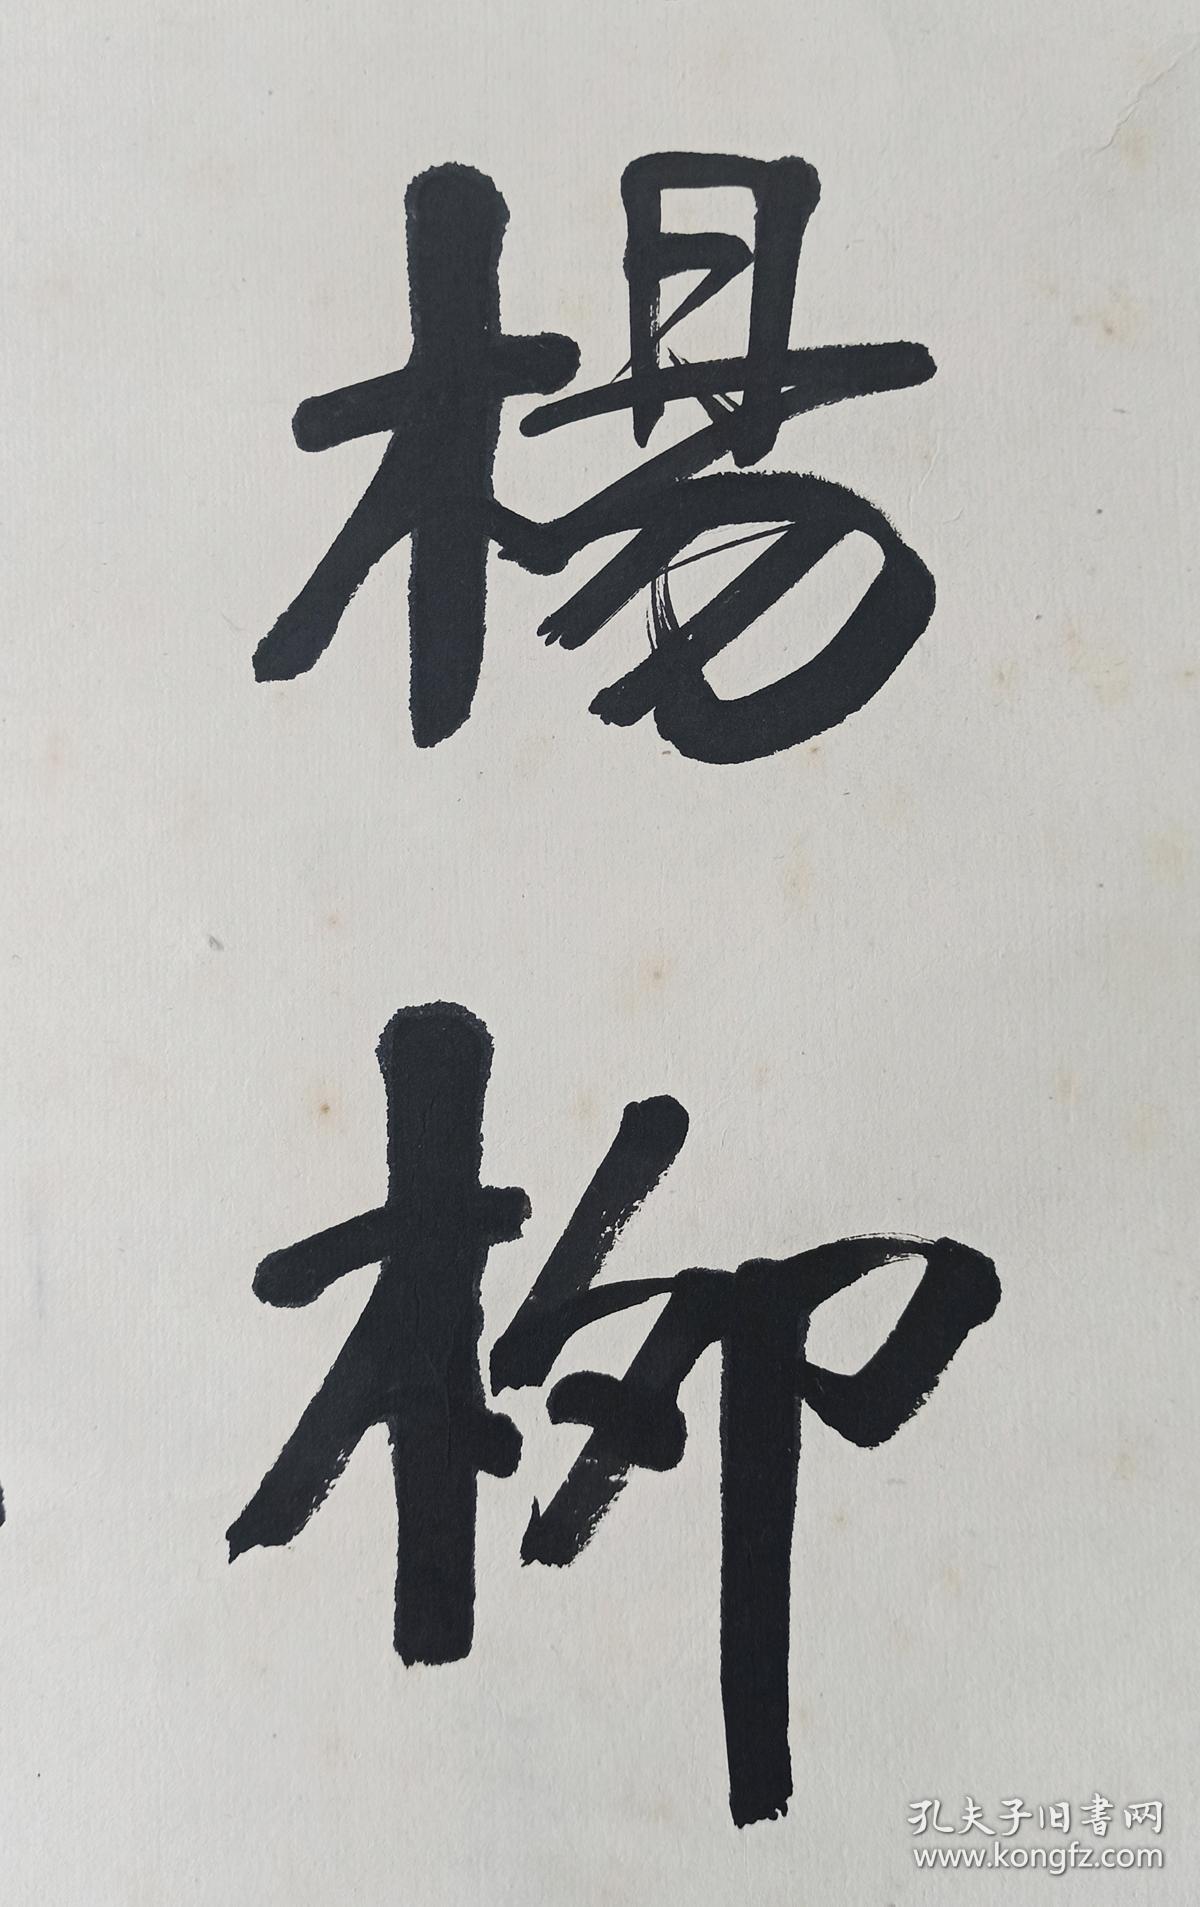 楊柳
孔夫子旧書网
www.kongfz.com